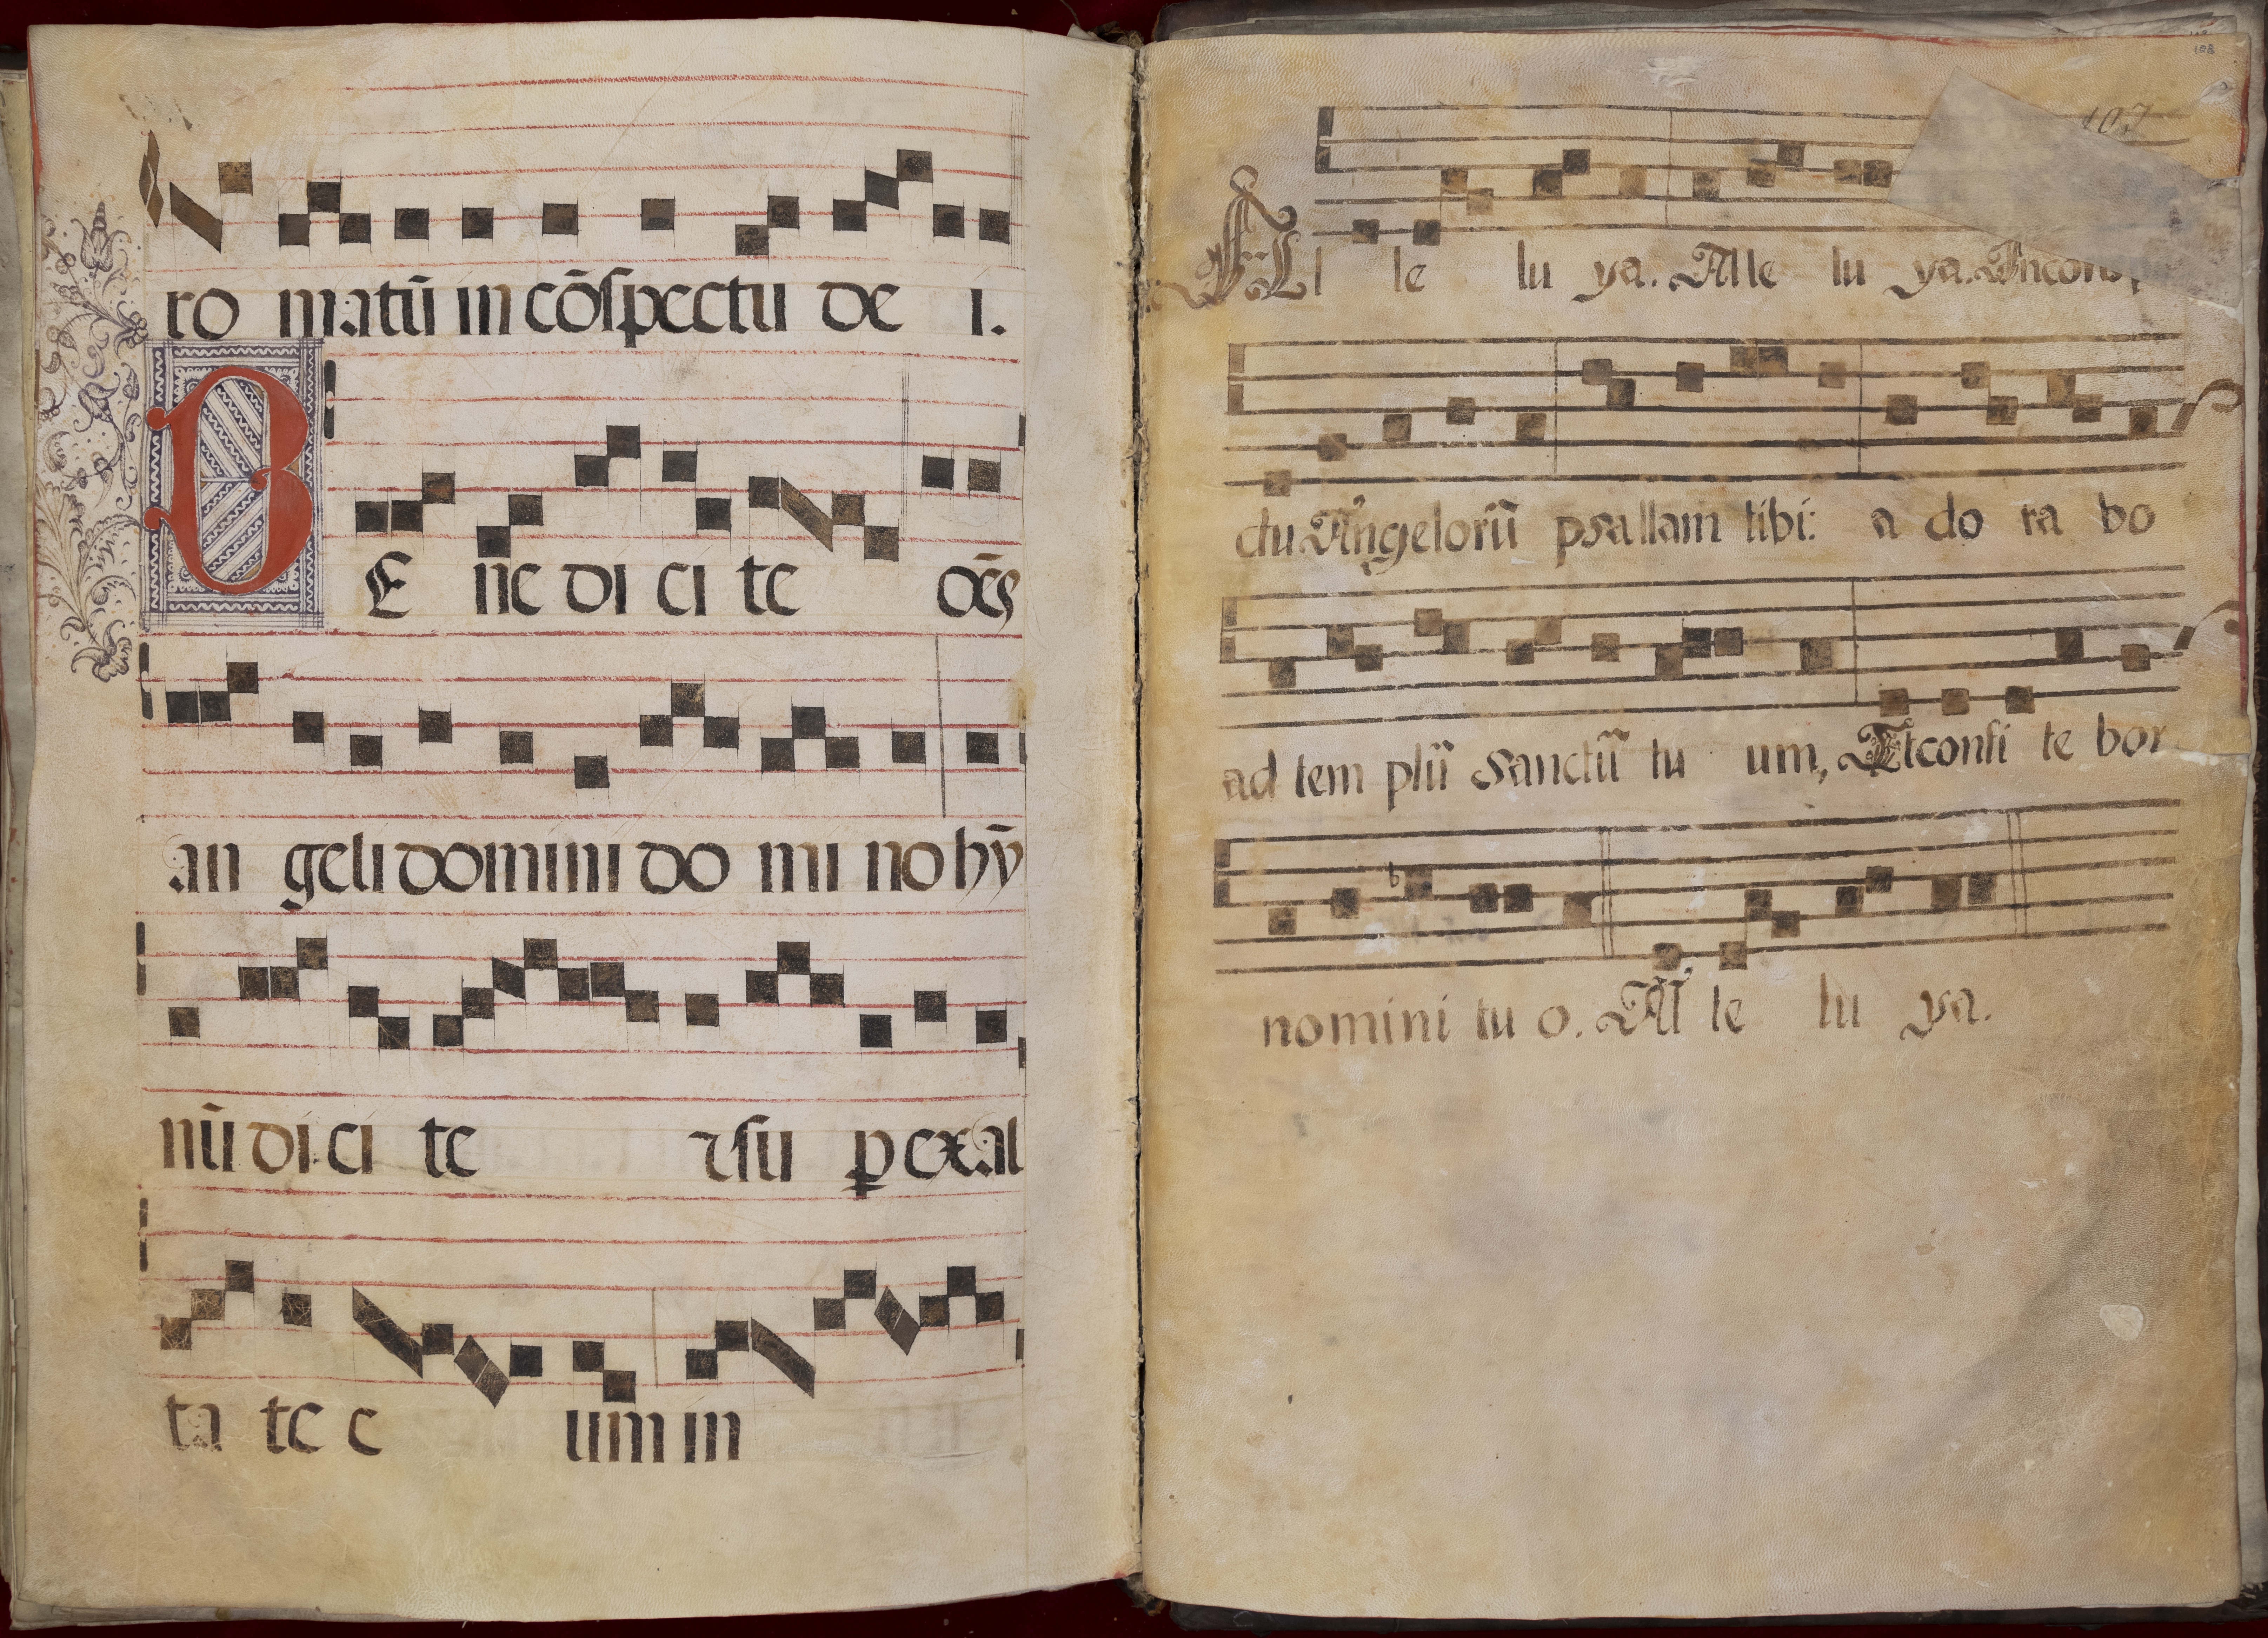 ro matū in cōspectu de i.
BE ne di ci te oēs
an geli domini do mi no hȳ
nū di ci te ⁊ su ꝑ exal
ta te e um in
108
107
Al le lu ya. Alle lu ya. In consp
ctu Angelorū psallam tibi: a do ra bo
ad tem plū sanctū tu um, Et confi te bor
nomini tu o. All le lu ya.